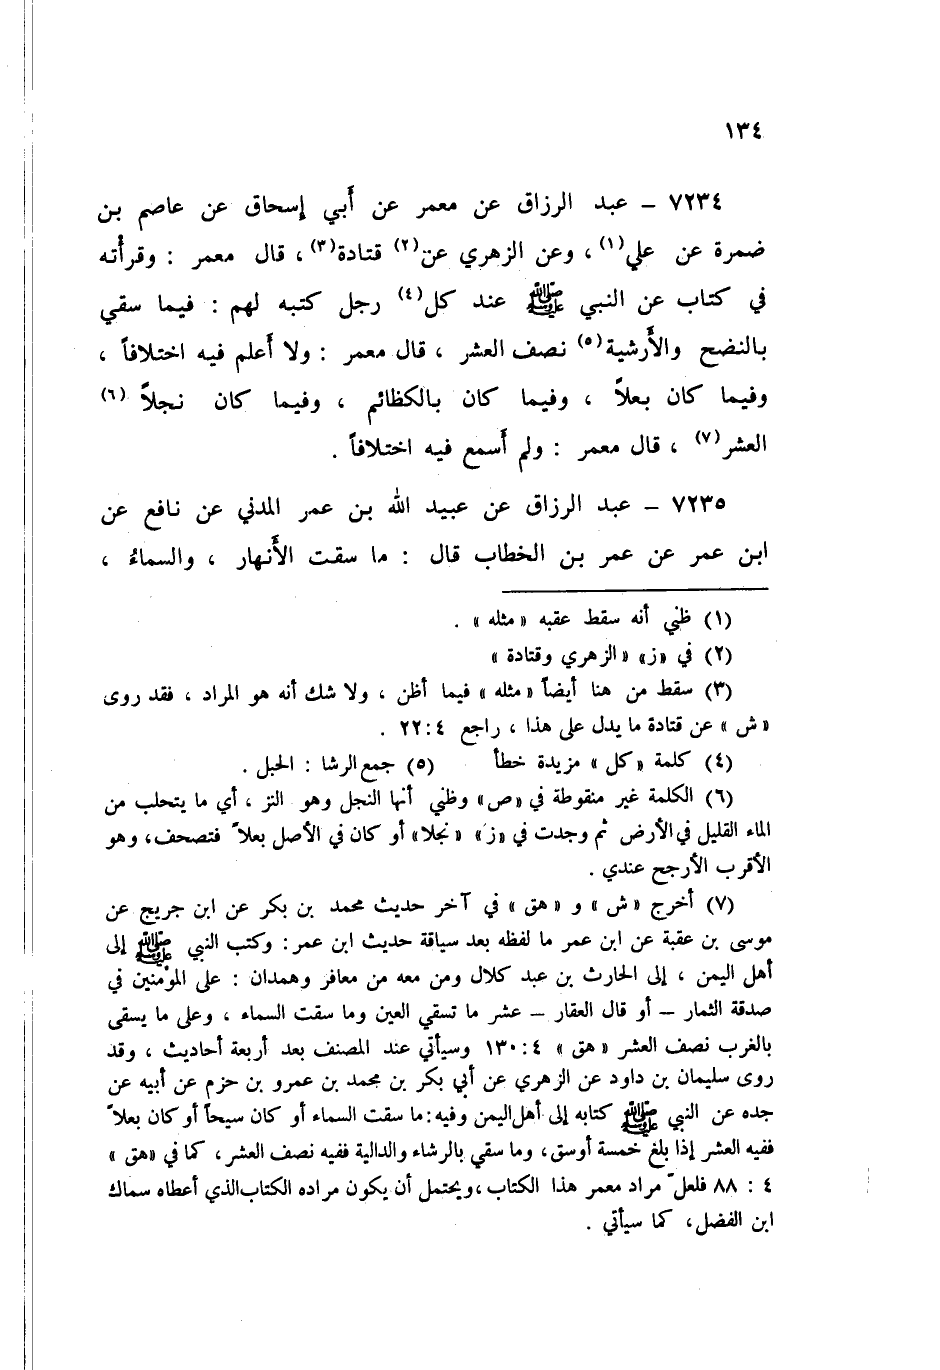 ١٣٤
٧٢٣٤ – عبد الرزاق عن معمر عن أَبي إسحاق عن عاصم بن
ضمرة عن علي(١) ، وعن الزهري عن(٢) قتادة(٣) ، قال معمر : وقرأْته
في كتاب عن النبي ﷺ عند كل(٤) رجل كتبه لهم : فيما سقي
بالنضح والأَرشية(٥) نصف العشر ، قال معمر : ولا أَعلم فيه اختلافاً ،
وفيما كان بعلاً ، وفيما كان بالكظائم ، وفيما كان نجلاً (٦)
العشر(٧) ، قال معمر : ولم أَسمع فيه اختلافاً .
٧٢٣٥ – عبد الرزاق عن عبيد الله بن عمر المدني عن نافع عن
ابن عمر عن عمر بن الخطاب قال : ما سقت الأَنهار ، والسماءُ ،
(١) ظني أنه سقط عقبه « مثله » .
(٢) في «ز» « الزهري وقتادة »
(٣) سقط من هنا أيضاً « مثله » فيما أظن ، ولا شك أنه هو المراد ، فقد روى
« ش » عن قتادة ما يدل على هذا ، راجع ٤ : ٢٢ .
(٤) كلمة « كل » مزيدة خطأ (٥) جمع الرشا : الحبل .
(٦) الكلمة غير منقوطة في «ص» وظني أنها النجل وهو النز ، أي ما يتحلب من
الماء القليل في الأرض ثم وجدت في «ز» « نجلا » أو كان في الأصل بعلاً فتصحف، وهو
الأقرب الأرجح عندي .
(٧) أخرج « ش » و « هق » في آخر حديث محمد بن بكر عن ابن جريج عن
موسى بن عقبة عن ابن عمر ما لفظه بعد سياقة حديث ابن عمر : وكتب النبي ﷺ إلى
أهل اليمن ، إلى الحارث بن عبد كلال ومن معه من معافر وهمدان : على المؤمنين في
صدقة الثمار – أو قال العقار – عشر ما تسقي العين وما سقت السماء ، وعلى ما يسقى
بالغرب نصف العشر « هق » ٤ : ١٣٠ وسيأتي عند المصنف بعد أربعة أحاديث ، وقد
روى سليمان بن داود عن الزهري عن أبي بكر بن محمد بن عمرو بن حزم عن أبيه عن
جده عن النبي ﷺ كتابه إلى أهل اليمن وفيه : ما سقت السماء أو كان سيحاً أو كان بعلاً
ففيه العشر إذا بلغ خمسة أوسق، وما سقي بالرشاء والدالية ففيه نصف العشر، كما في «هق »
٤ : ٨٨ فلعلّ مراد معمر هذا الكتاب ،ويحتمل أن يكون مراده الكتاب الذي أعطاه سماك
ابن الفضل، كما سيأتي .